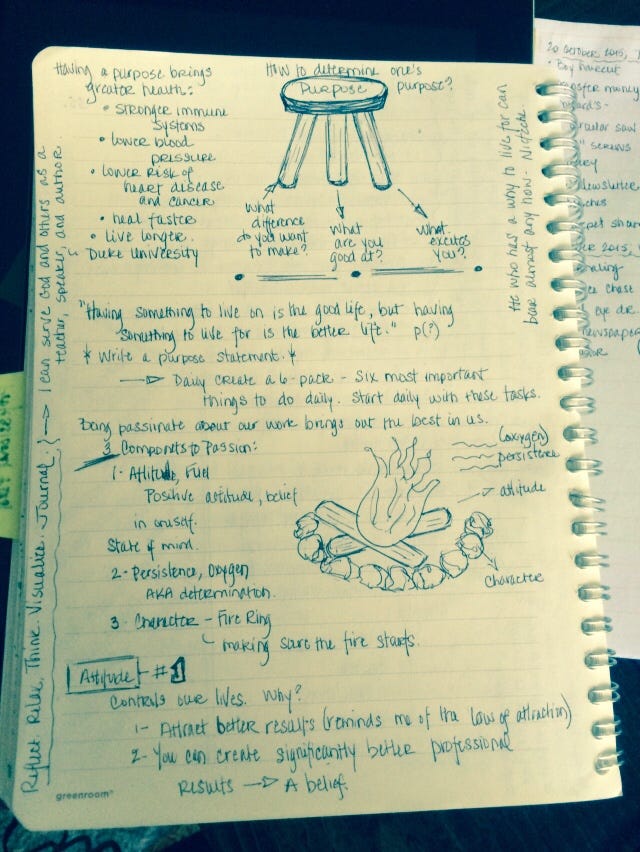 Having a purpose brings
greater health:
• stronger immune
systems
• lower blood
pressure
• lower risk of
heart disease
and cancer
• heal faster
• live longer.
Duke University
How to determine one's
purpose?
Purpose
What
difference
do you want
to make?
What
are you
good at?
What
excites
you?
He who has a why to live for can
bear almost any how - Nietzche
"Having something to live on is the good life, but having
something to live for is the better life." p(?)
* Write a purpose statement. *
Daily create a 6-pack - Six most important
things to do daily. Start daily with these tasks.
Being passionate about our work brings out the best in us.
3 Componets to Passion:
1- Attitude, Fuel
Positive attitude, belief
in oneself.
State of mind.
2- Persistence, Oxygen
AKA determination.
3. Character - Fire Ring
making sure the fire starts.
(oxygen)
persistence
attitude
character
Attitude - #1
Controls our lives. Why?
1- Attract better results (reminds me of the law of attraction)
2- You can create significantly better professional
results → A belief.
greenroom
Reflect. Relax. Think. Visualize. Journal.
→ I can serve God and others as a
teacher, speaker, and author.
20 October 2015,
• Boy haircut
money
saw
screws
newsletter
2015,
chase
eye dr.
newspaper